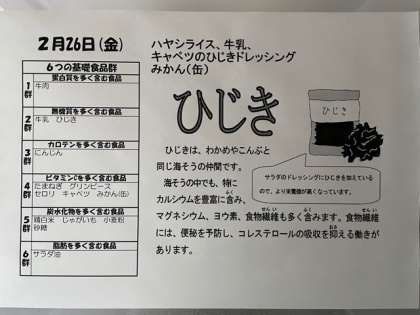 2月26日(金)
ハヤシライス、牛乳、
キャベツのひじきドレッシング
みかん(缶)
6つの基礎食品群
蛋白質を多く含む食品
1群
牛肉
無機質を多く含む食品
2群
牛乳 ひじき
カロテンを多く含む食品
3群
にんじん
ビタミンCを多く含む食品
4群
たまねぎ グリンピース
セロリ キャベツ みかん(缶)
炭水化物を多く含む食品
5群
精白米 じゃがいも 小麦粉
砂糖
脂肪を多く含む食品
6群
サラダ油
ひじき
ひじき
ひじきは、わかめやこんぶと
同じ海そうの仲間です。
海そうの中でも、特に
カルシウムを豊富に含み、
マグネシウム、ヨウ素、食物繊維も多く含みます。食物繊維
には、便秘を予防し、コレステロールの吸収を抑える働きが
あります。
サラダのドレッシングにひじきを加えている
ので、より栄養価が高くなっています。